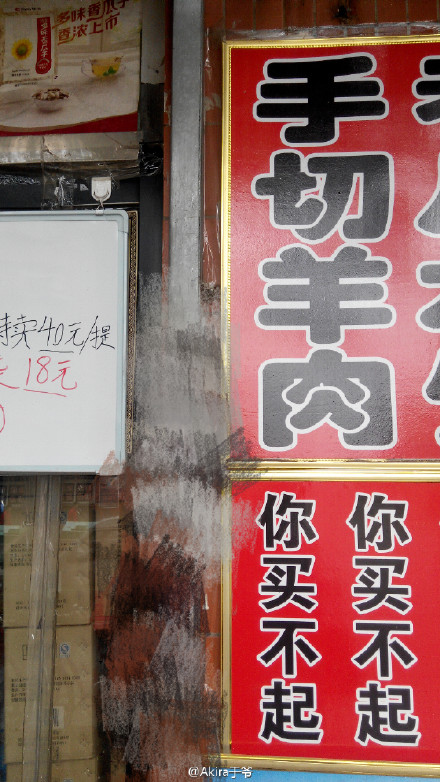 多味香瓜子
香浓上市
特卖40元/提
18元
手切羊肉
你买不起
你买不起
@Akira于爷